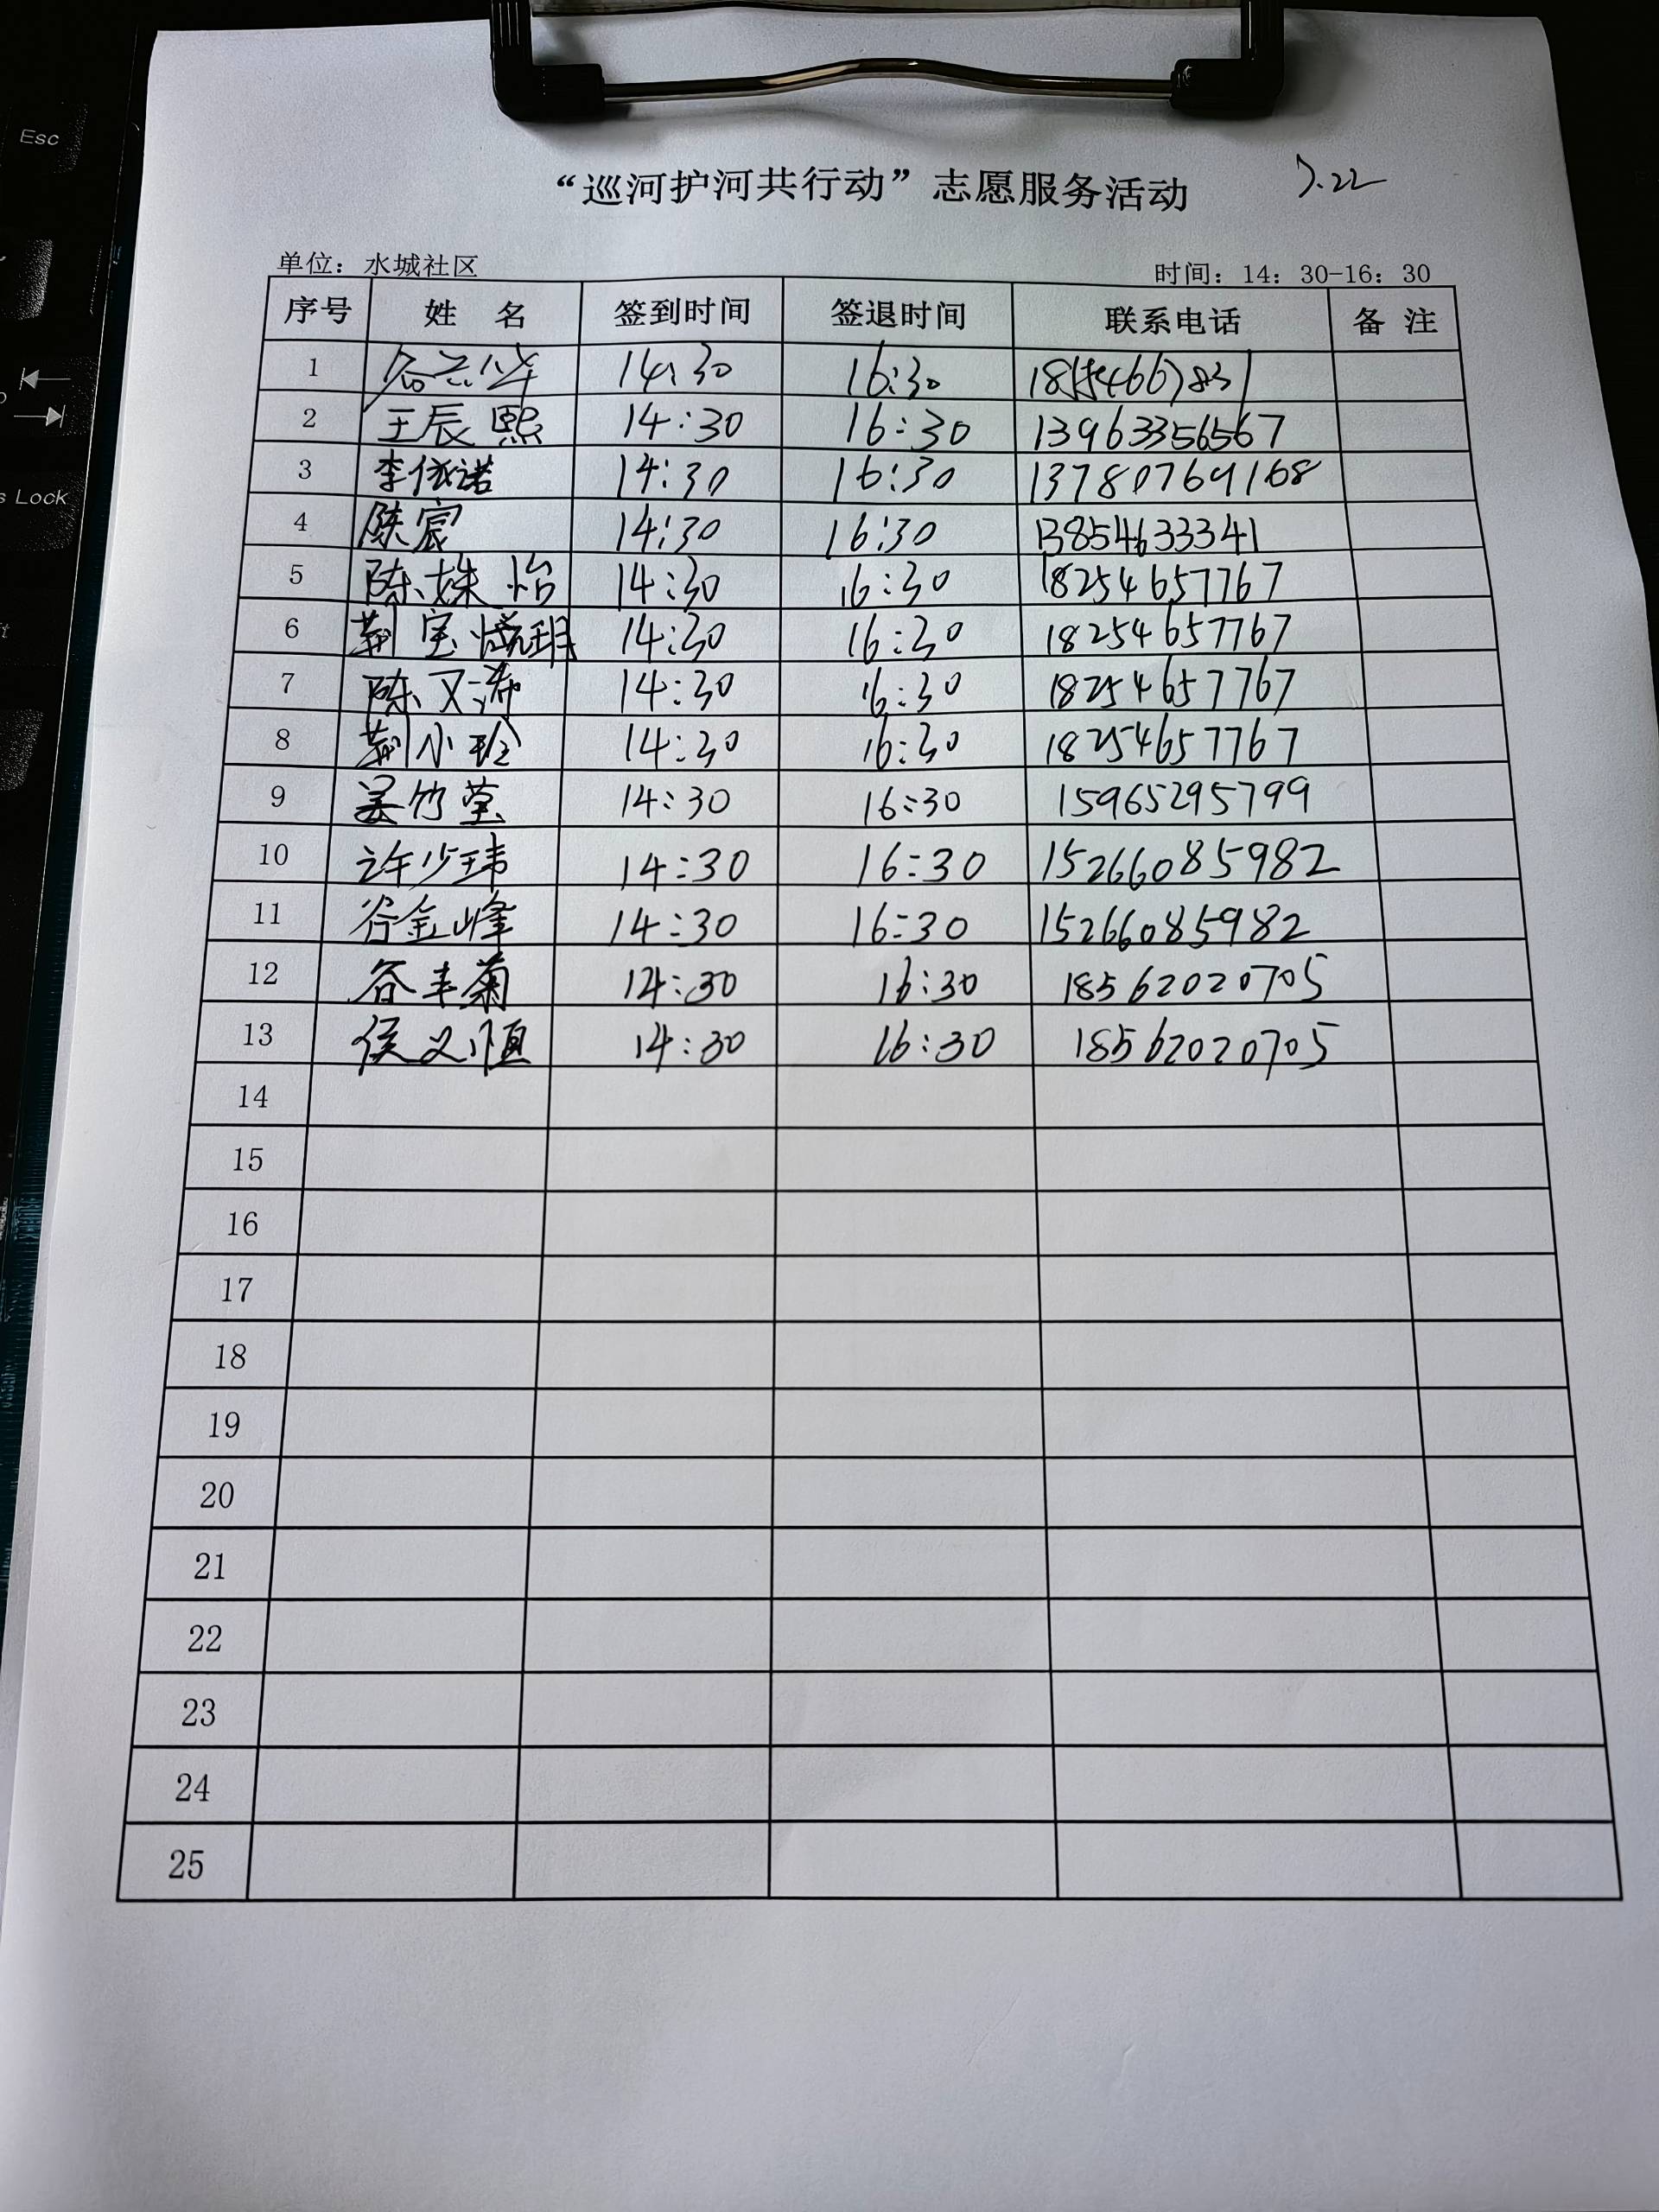 Esc
s Lock
“巡河护河共行动”志愿服务活动 7.22
单位：水城社区 时间：14：30-16：30
序号 姓 名 签到时间 签退时间 联系电话 备 注
1 14:30 16:30
2 王辰熙 14:30 16:30 13963356567
3 李依诺 14:30 16:30 13780769168
4 陈宸 14:30 16:30 13854633341
5 陈姝怡 14:30 16:30 18254657767
6 荆宝 14:30 16:30 18254657767
7 陈又沛 14:30 16:30 18254657767
8 荆小玲 14:30 16:30 18254657767
9 姜竹莹 14:30 16:30 15965295799
10 许少玮 14:30 16:30 15266085982
11 谷金峰 14:30 16:30 15266085982
12 谷丰菊 14:30 16:30 18562020705
13 侯义恒 14:30 16:30 18562020705
14
15
16
17
18
19
20
21
22
23
24
25